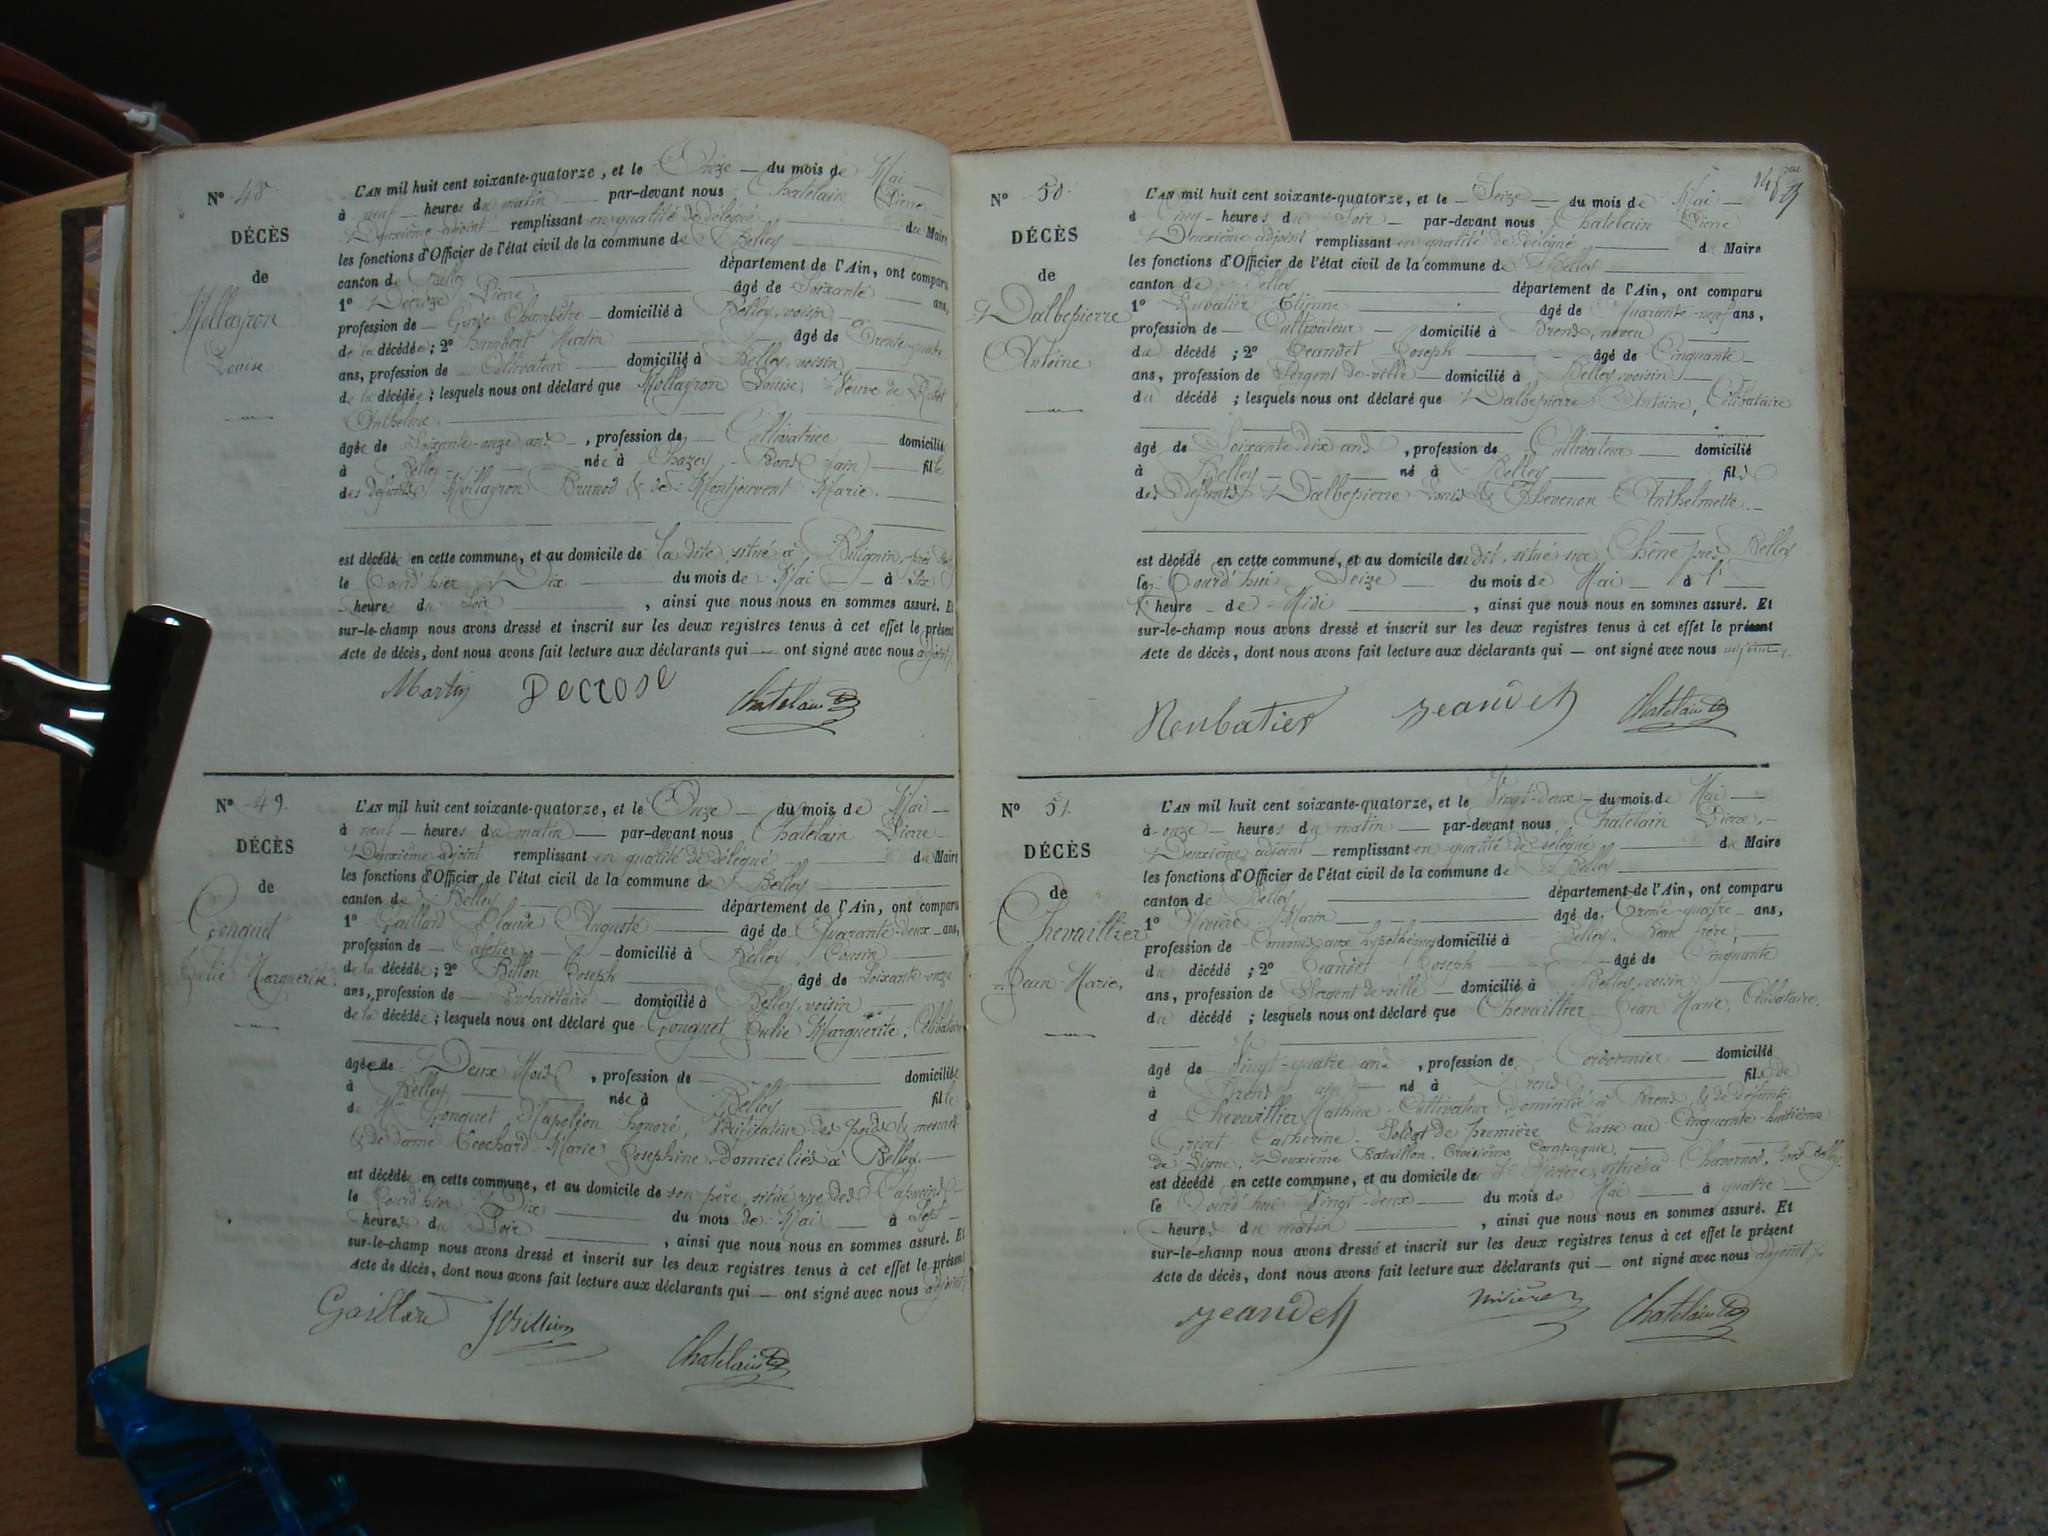 N° 48
DÉCÈS
de
Mollayron
Louise
L'AN mil huit cent soixante-quatorze, et le Onze du mois de Mai
à neuf heures du matin par-devant nous Chatelain Pierre
Deuxième adjoint remplissant en qualité de délégué du Maire
les fonctions d'Officier de l'état civil de la commune de Belley
canton de Belley département de l'Ain, ont comparu
1° Decroze Pierre âgé de Soixante ans,
profession de Garde Champêtre domicilié à Belley, voisin
de la décédée; 2° Humbert Martin âgé de Trente-quatre
ans, profession de Cultivateur domicilié à Belley, voisin
de la décédée; lesquels nous ont déclaré que Mollayron Louise, Veuve de
Anthelme
âgée de Soixante-onze ans, profession de Cultivatrice domiciliée
à Belley née à Chazey-Bons (ain) fille
des défunts Mollayron Brunod & de Montjouvent Marie.
est décédée en cette commune, et au domicile de la dite, situé à Billignin, près
le Jourd'hier Dix du mois de Mai à Six
heures du Soir, ainsi que nous nous en sommes assuré. Et
sur-le-champ nous avons dressé et inscrit sur les deux registres tenus à cet effet le présent
Acte de décès, dont nous avons fait lecture aux déclarants qui ont signé avec nous adjoint
Martin Decrose Chatelain
N° 49.
DÉCÈS
de
Gonguet
Julie Marguerite
L'AN mil huit cent soixante-quatorze, et le Onze du mois de Mai
à neuf heures du matin par-devant nous Chatelain Pierre
Deuxième adjoint remplissant en qualité de délégué du Maire
les fonctions d'Officier de l'état civil de la commune de Belley
canton de Belley département de l'Ain, ont comparu
1° Gaillard Claude Auguste âgé de Quarante-deux ans,
profession de Cafetier domicilié à Belley, Cousin
de la décédée; 2° Billon Joseph âgé de Soixante-onze
ans, profession de Propriétaire domicilié à Belley, voisin
de la décédée; lesquels nous ont déclaré que Gonguet Julie Marguerite, Célibataire
âgée de Deux Mois, profession de domiciliée
à Belley née à Belley fille
de Gonguet Napoléon honoré, Vérificateur des poids & mesures
& de dame Marie Josephine domiciliés à Belley.
est décédée en cette commune, et au domicile de son père, situé rue des Capucins
le Jourd'hier Dix du mois de Mai à Sept
heures du Soir, ainsi que nous nous en sommes assuré. Et
sur-le-champ nous avons dressé et inscrit sur les deux registres tenus à cet effet le présent
Acte de décès, dont nous avons fait lecture aux déclarants qui ont signé avec nous adjoint
Gaillard JBillion Chatelain
N° 50.
DÉCÈS
de
Dalbepierre
Antoine
L'AN mil huit cent soixante-quatorze, et le Seize du mois de Mai
à Cinq heures du Soir par-devant nous Chatelain Pierre
Deuxième adjoint remplissant en qualité de délégué du Maire
les fonctions d'Officier de l'état civil de la commune de Belley
canton de Belley département de l'Ain, ont comparu
1° Etienne âgé de Quarante-neuf ans,
profession de Cultivateur domicilié à Brens, neveu
du décédé; 2° Jeandet Joseph âgé de Cinquante
ans, profession de Sergent de-ville domicilié à Belley, voisin
du décédé; lesquels nous ont déclaré que Dalbepierre Antoine, Célibataire
âgé de Soixante-Dix ans, profession de Cultivateur domicilié
à Belley né à Belley fils
des Défunts Dalbepierre Louis & Thevenon Anthelmette
est décédé en cette commune, et au domicile dudit, situé au Chêne près Belley
le Jourd'hui Seize du mois de Mai à l'
heure de Midi, ainsi que nous nous en sommes assuré. Et
sur-le-champ nous avons dressé et inscrit sur les deux registres tenus à cet effet le présent
Acte de décès, dont nous avons fait lecture aux déclarants qui ont signé avec nous adjoint.
Neubatier Jeandet Chatelain
N° 51.
DÉCÈS
de
Chevaillier
Jean-Marie,
L'AN mil huit cent soixante-quatorze, et le Vingt-deux du mois de Mai
à onze heures du matin par-devant nous Chatelain Pierre
Deuxième adjoint remplissant en qualité de délégué du Maire
les fonctions d'Officier de l'état civil de la commune de Belley
canton de Belley département de l'Ain, ont comparu
1° Nivière Marin âgé de Trente-quatre ans,
profession de Commis aux hypothèques domicilié à Belley, Beau frère,
du décédé; 2° Jeandet Joseph âgé de Cinquante
ans, profession de Sergent de-ville domicilié à Belley, voisin
du décédé; lesquels nous ont déclaré que Chevaillier Jean Marie, Célibataire,
âgé de Vingt-quatre ans, profession de Cordonnier domicilié
à Brens né à Brens fils de
d Chevaillier Mathieu Cultivateur domicilié à Brens & de défunte
Grivet Catherine. Soldat de première Classe au Cinquante-huitième
de Ligne, Deuxième Bataillon, Troisième Compagnie,
est décédé en cette commune, et au domicile du Sr Nivière, situé à Chavornod, près Belley
le Jourd'hui Vingt-deux du mois de Mai à quatre
heures du matin, ainsi que nous nous en sommes assuré. Et
sur-le-champ nous avons dressé et inscrit sur les deux registres tenus à cet effet le présent
Acte de décès, dont nous avons fait lecture aux déclarants qui ont signé avec nous adjoint.
Jeandet Nivière Chatelain